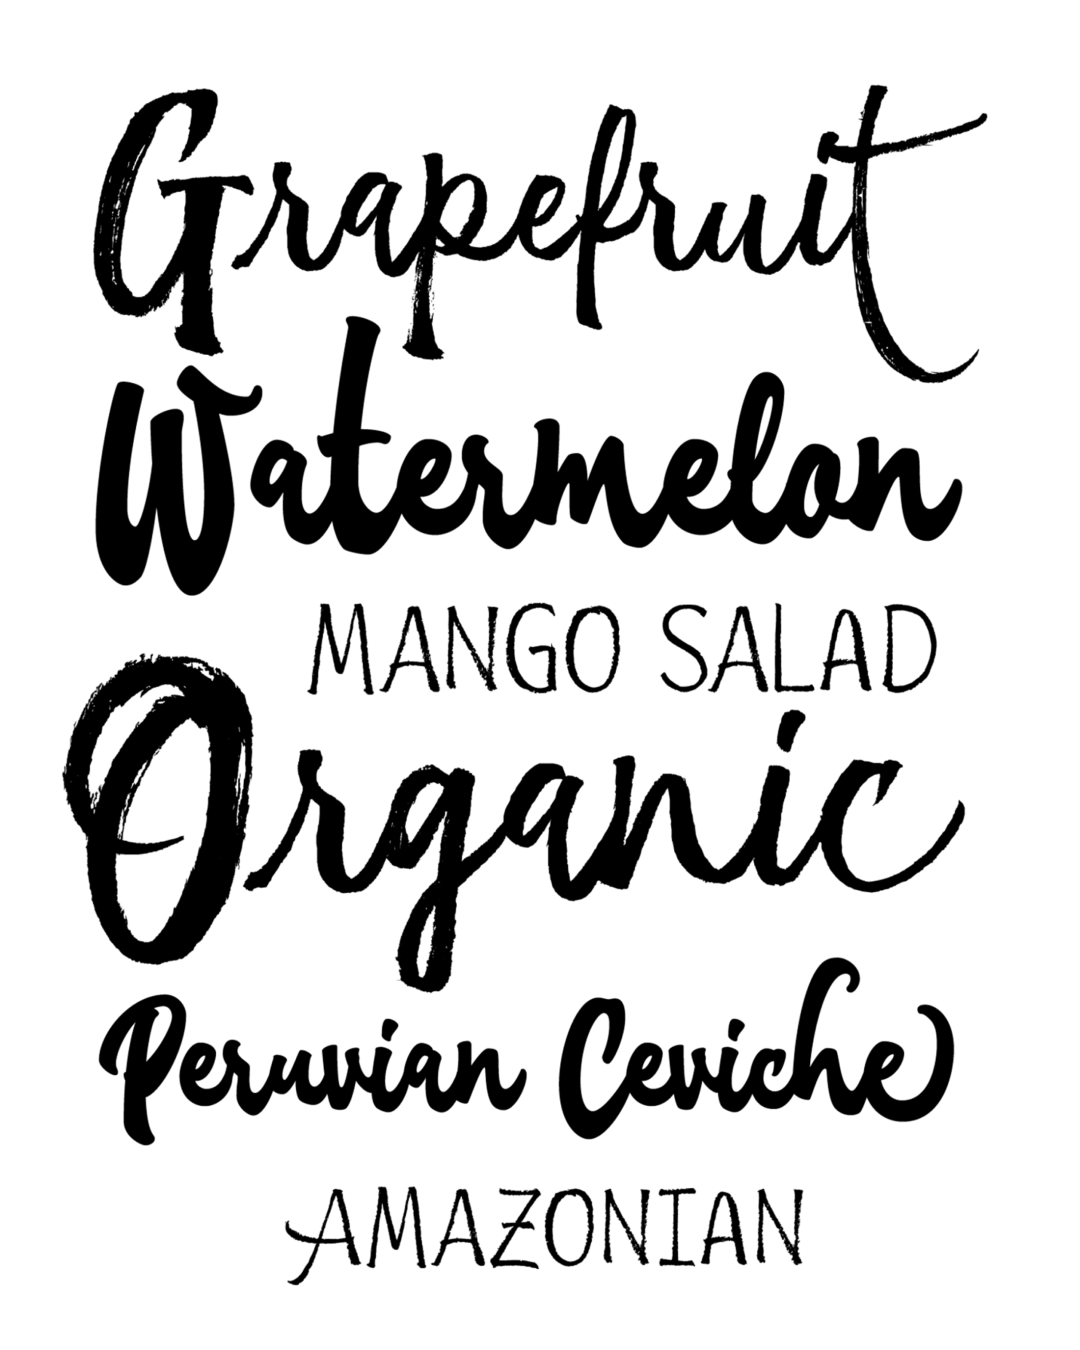 Grapefruit
Watermelon
MANGO SALAD
Organic
Peruvian Ceviche
AMAZONIAN